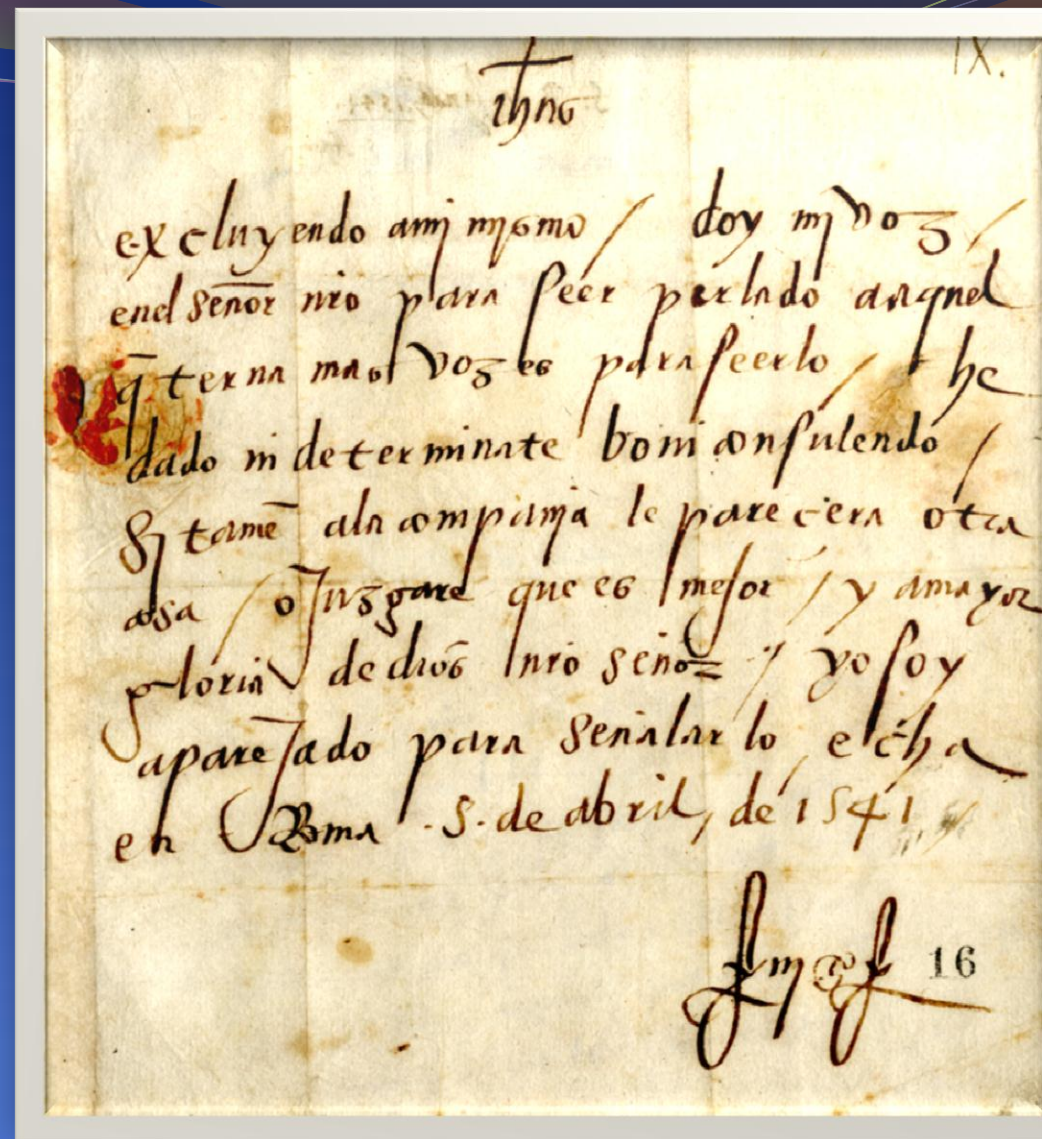 IX.
ihus
excluyendo a mj mjsmo / doy mj voz /
enel señor nr̃o para seer perlado aaquel
q̄ terna mas vozes para seerlo / he
dado indeterminate boni consulendo /
Sj tamē ala compañja le parecera otra
cosa / o Juzgare que es mejor / y a mayor
gloria de dios nr̃o señor / yo soy
apareJado para señalarlo echa
en Roma .5. de abril, de 1541
16